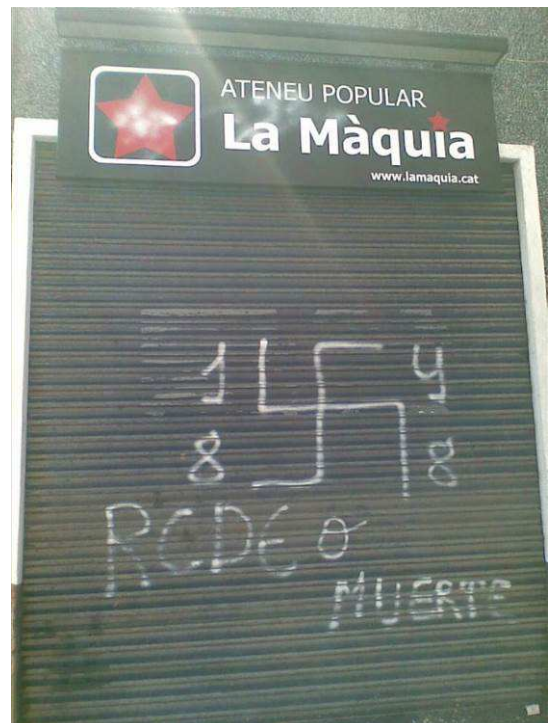 ATENEU POPULAR
La Màquia
www.lamaquia.cat
1 4
8 8
RCDE O
MUERTE